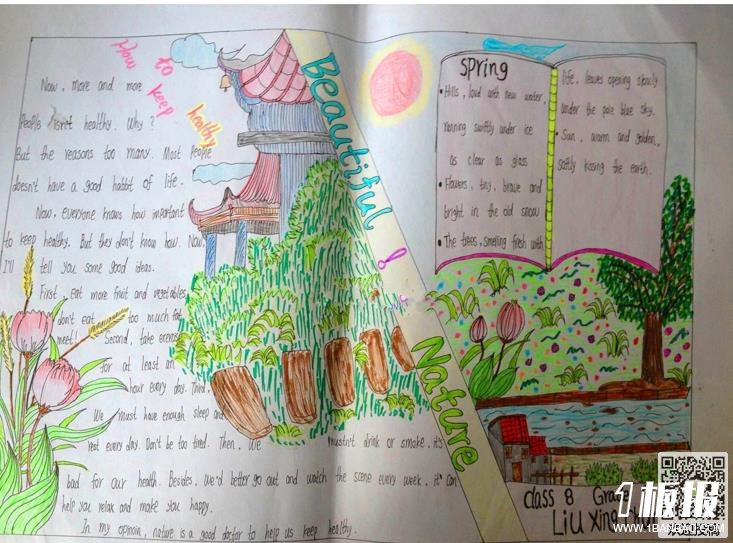 How to keep healthy
Now, more and more
people isn't healthy. Why?
But the reasons too many. Most people
doesn't have a good habbt of life.
Now, everyone knows how important
to keep healthy. But they don't know how. Now,
I'll tell you some good ideas.
First, eat more fruit and vegetables
don't eat too much fat
meet! Second, take exercise
for at least an
hour every day. Third,
We must have enough sleep and
rest every day. Don't be too tired. Then, We mustn't drink or smoke, it's
bad for our health. Besides, we'd better go out and watch the scene every week, it can
help you relax and make you happy.
In my opinion, nature is a good doctor to help us keep healthy.
Beautiful
Nature
spring
• Hills, loud with new water,
running swiftly under ice
as clear as glass
• Flowers, tiny, brave and
bright in the old snow
• The trees, smelling fresh with
life, leaves opening slowly
under the pale blue sky.
• Sun, warm and golden,
softly kissing the earth.
class 8
Liu
1板报
WWW.1BANBAO.COM
欢迎投稿